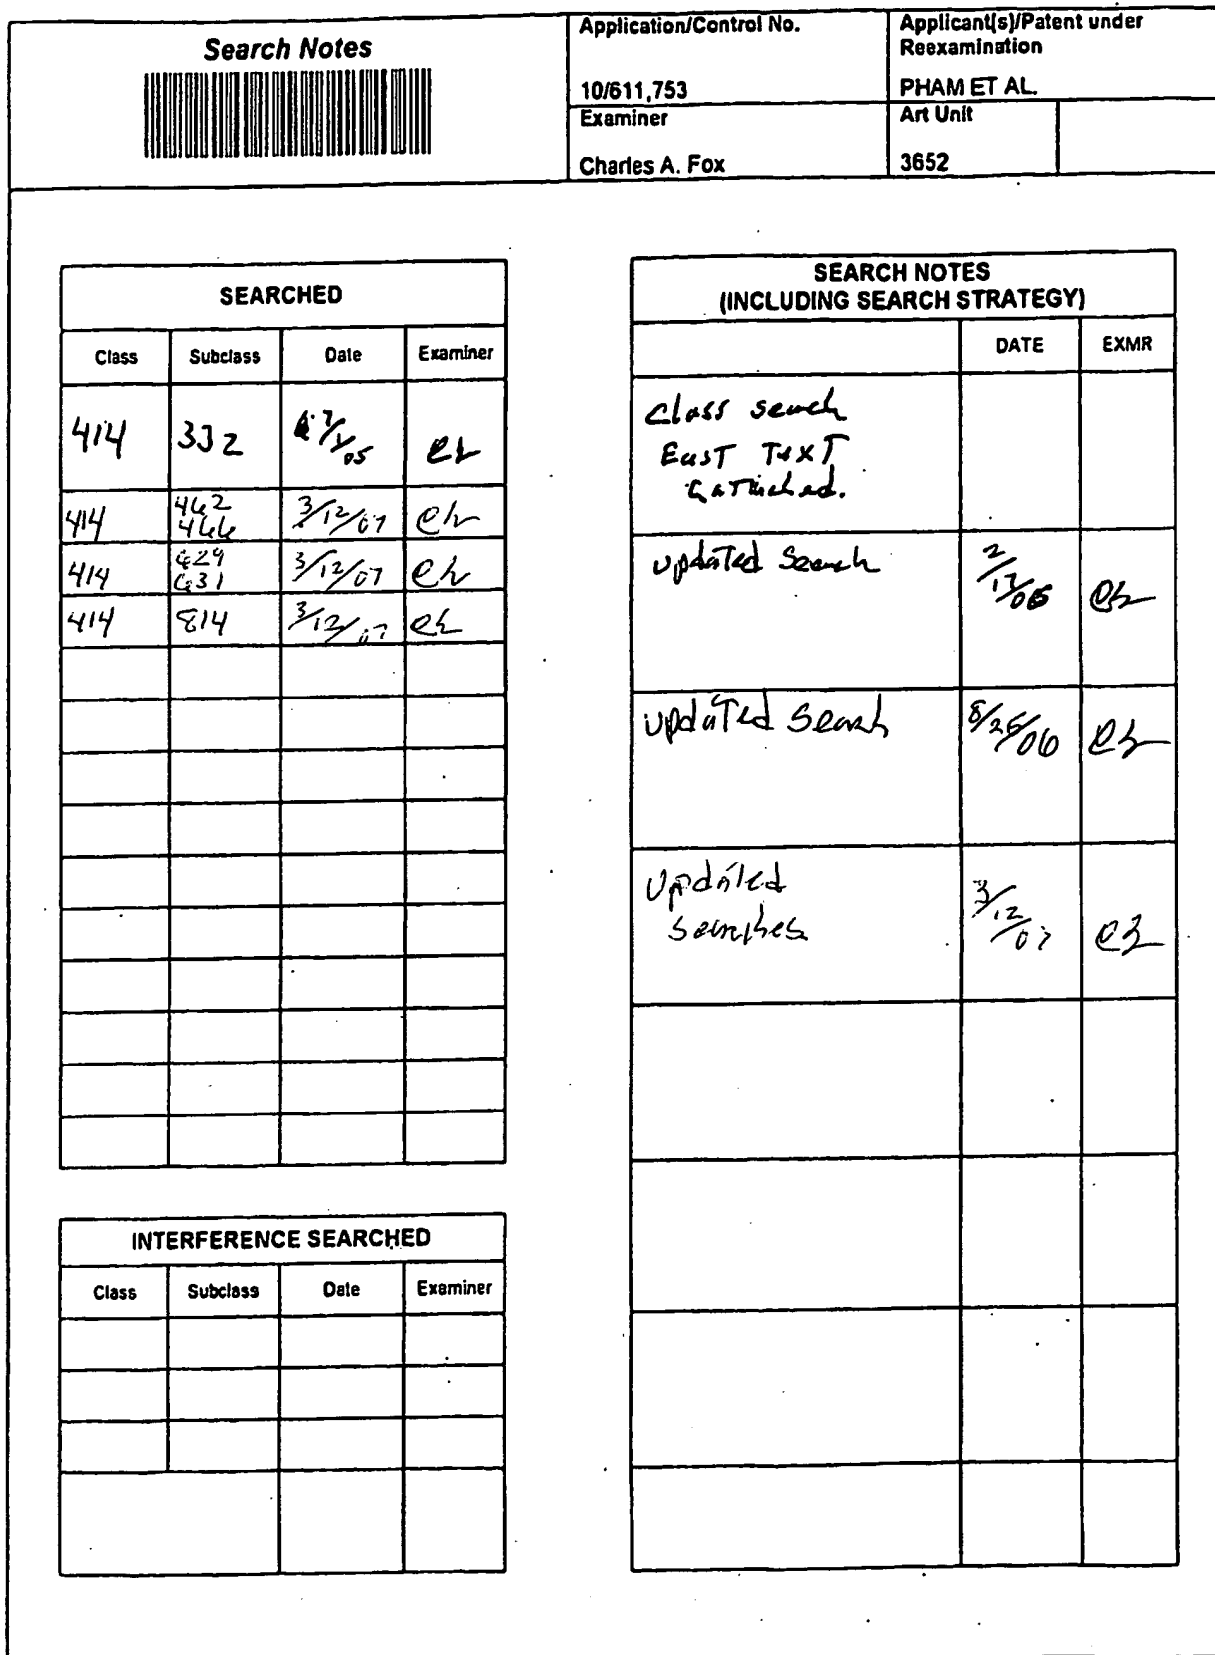 Search Notes
Application/Control No.
10/611,753
Applicant(s)/Patent under
Reexamination
PHAM ET AL.
Examiner
Charles A. Fox
Art Unit
3652
SEARCHED
Class Subclass Date Examiner
414 332
414 462 3/12/07
466
414 3/12/07
631
414 814 3/12/07
INTERFERENCE SEARCHED
Class Subclass Date Examiner
SEARCH NOTES
(INCLUDING SEARCH STRATEGY)
DATE EXMR
Class search
East Text
attached.
updated Search
updated Search
Updated 3/12/07
searches